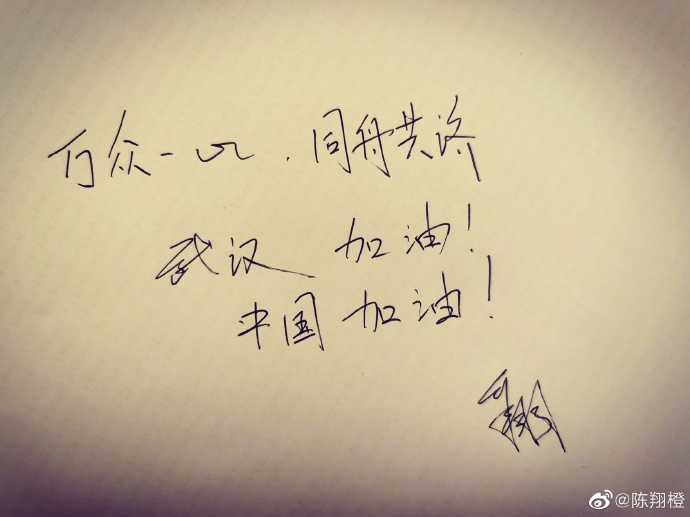 万众一心，同舟共济
武汉 加油！
中国 加油！
翔
@陈翔橙